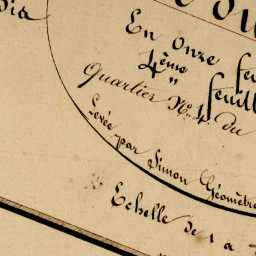 En Onze
4ème
Quartier No. 4 du
Levée par Simon Géomètre
Echelle de 1 a